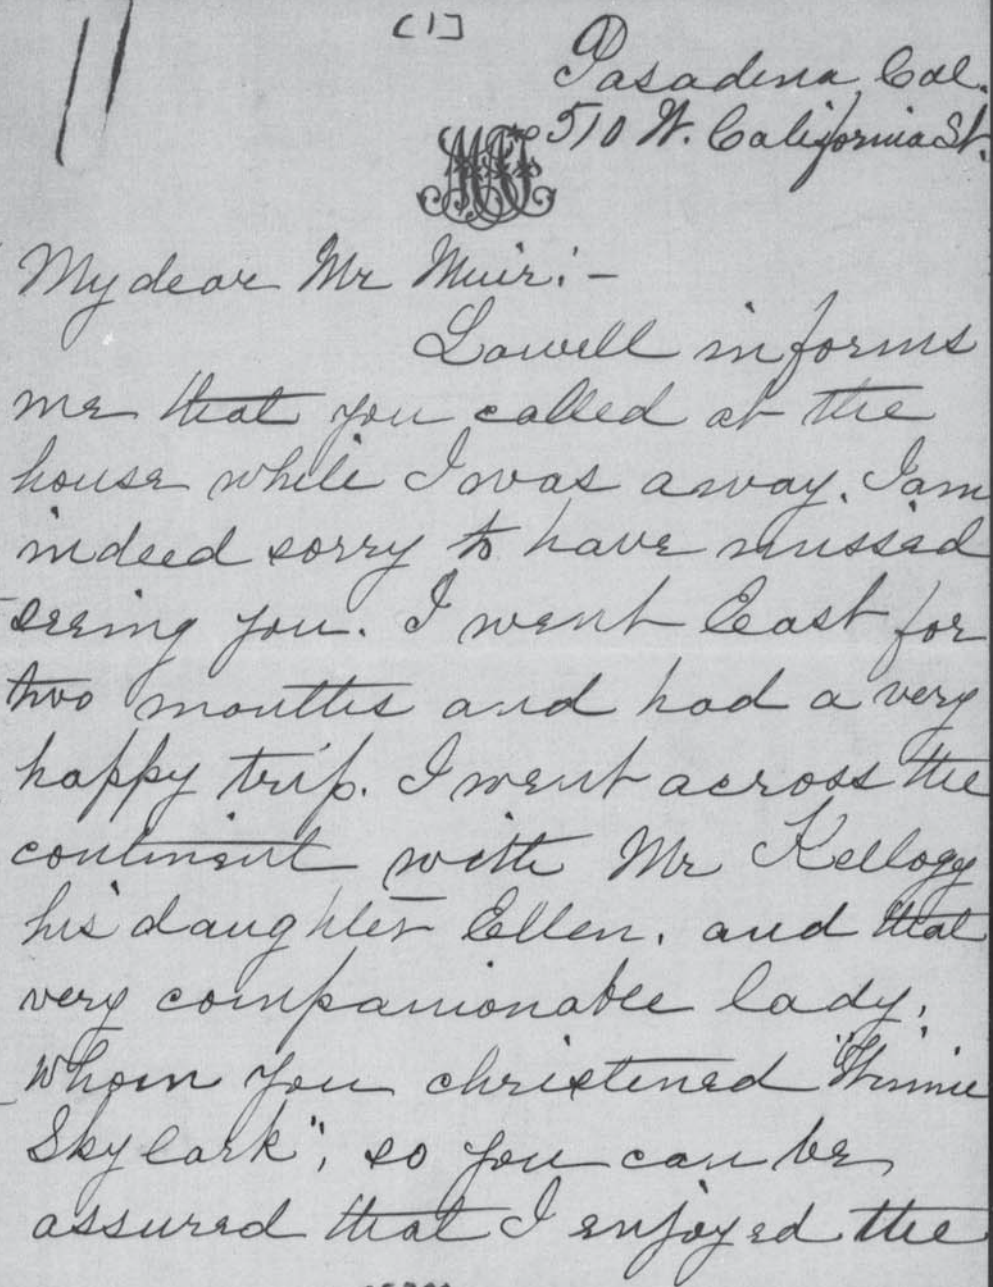 [1]
Pasadena, Cal.
510 W. California St.
My dear Mr Muir:-
Lowell informs
me that you called at the
house while I was away. I am
indeed sorry to have missed
seeing you. I went East for
two months and had a very
happy trip. I went across the
continent with Mr Kellogg
his daughter Ellen, and that
very companionable lady,
whom you christened "Winnie
Skylark", so you can be
assured that I enjoyed the